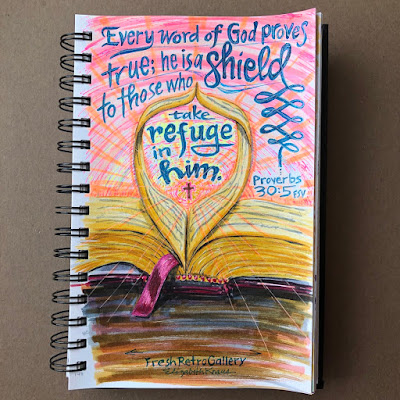 Every word of God proves
true; he is a shield
to those who
take
refuge
in
him.
Proverbs
30:5 ESV
FreshRetroGallery